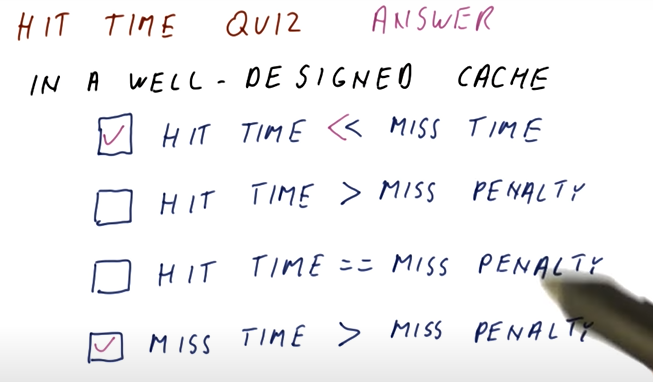 HIT TIME QUIZ ANSWER
IN A WELL-DESIGNED CACHE
HIT TIME << MISS TIME
HIT TIME > MISS PENALTY
HIT TIME == MISS PENALTY
MISS TIME > MISS PENALTY